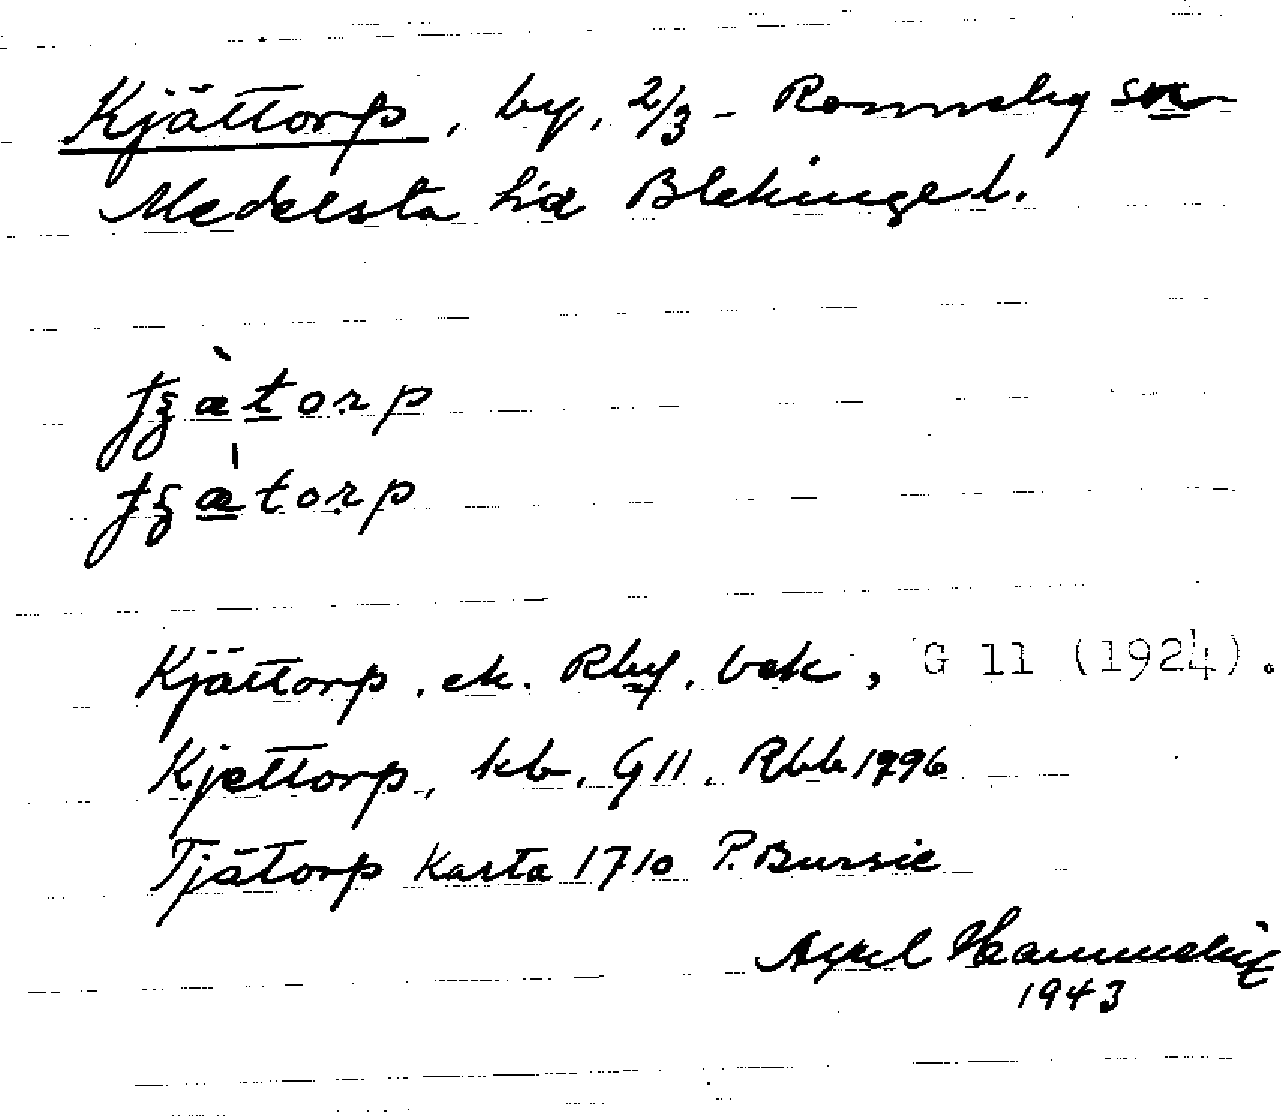 Kjättorp, by, 2/3 - Ronneby sn
Medelsta hd Blekinge l.
Kjättorp, ek. Rby. bek, G 11 (1924).
Kjettorp, kb. G 11. Rbb 1796
Tjätorp Karta 1710 P. Bursie
Axel
1943